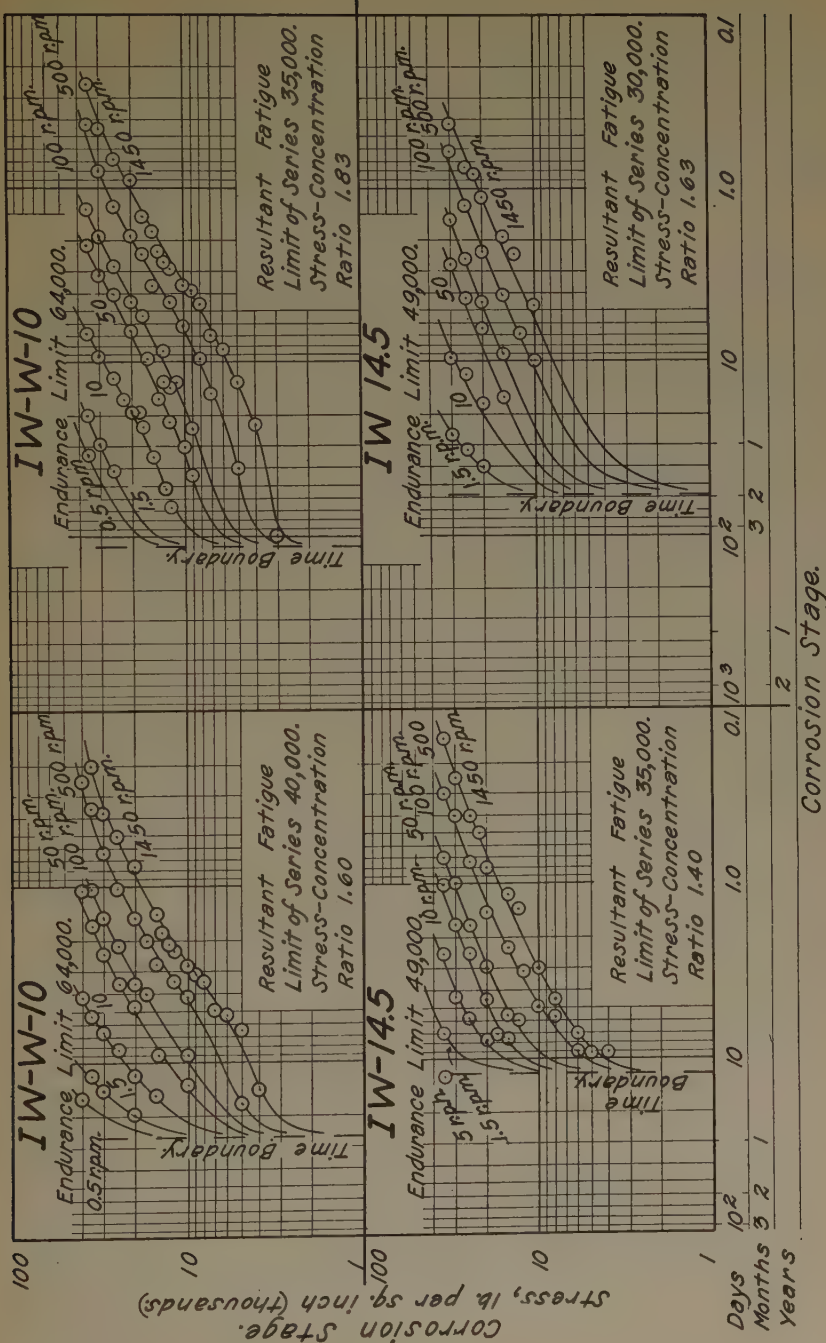 IW-W-10
Endurance Limit 64,000.
0.5 r.p.m.
1.5
10
50 r.p.m.
100 r.p.m.
500 r.p.m.
1450 r.p.m.
Time Boundary.
Resultant Fatigue
Limit of Series 40,000.
Stress-Concentration
Ratio 1.60
IW-W-10
Endurance Limit 64,000.
0.5 r.p.m.
1.5
10
50
100 r.p.m.
500 r.p.m.
1450 r.p.m.
Time Boundary.
Resultant Fatigue
Limit of Series 35,000.
Stress-Concentration
Ratio 1.83
IW-14.5
Endurance Limit 49,000.
5 r.p.m.
1.5 r.p.m.
10 r.p.m.
50 r.p.m.
100 r.p.m.
500
1450 r.p.m.
Time
Boundary
Resultant Fatigue
Limit of Series 35,000.
Stress-Concentration
Ratio 1.40
IW 14.5
Endurance Limit 49,000.
1.5 r.p.m.
10
50
100 r.p.m.
500 r.p.m.
1450 r.p.m.
Time Boundary.
Resultant Fatigue
Limit of Series 30,000.
Stress-Concentration
Ratio 1.63
100
10
1
100
10
1
Corrosion Stage.
Stress, lb. per sq. inch (thousands)
Days 10² 10 1.0 0.1 10³ 10² 10 1.0 0.1
Months 3 2 1 3 2 1
Years 2 1
Corrosion Stage.